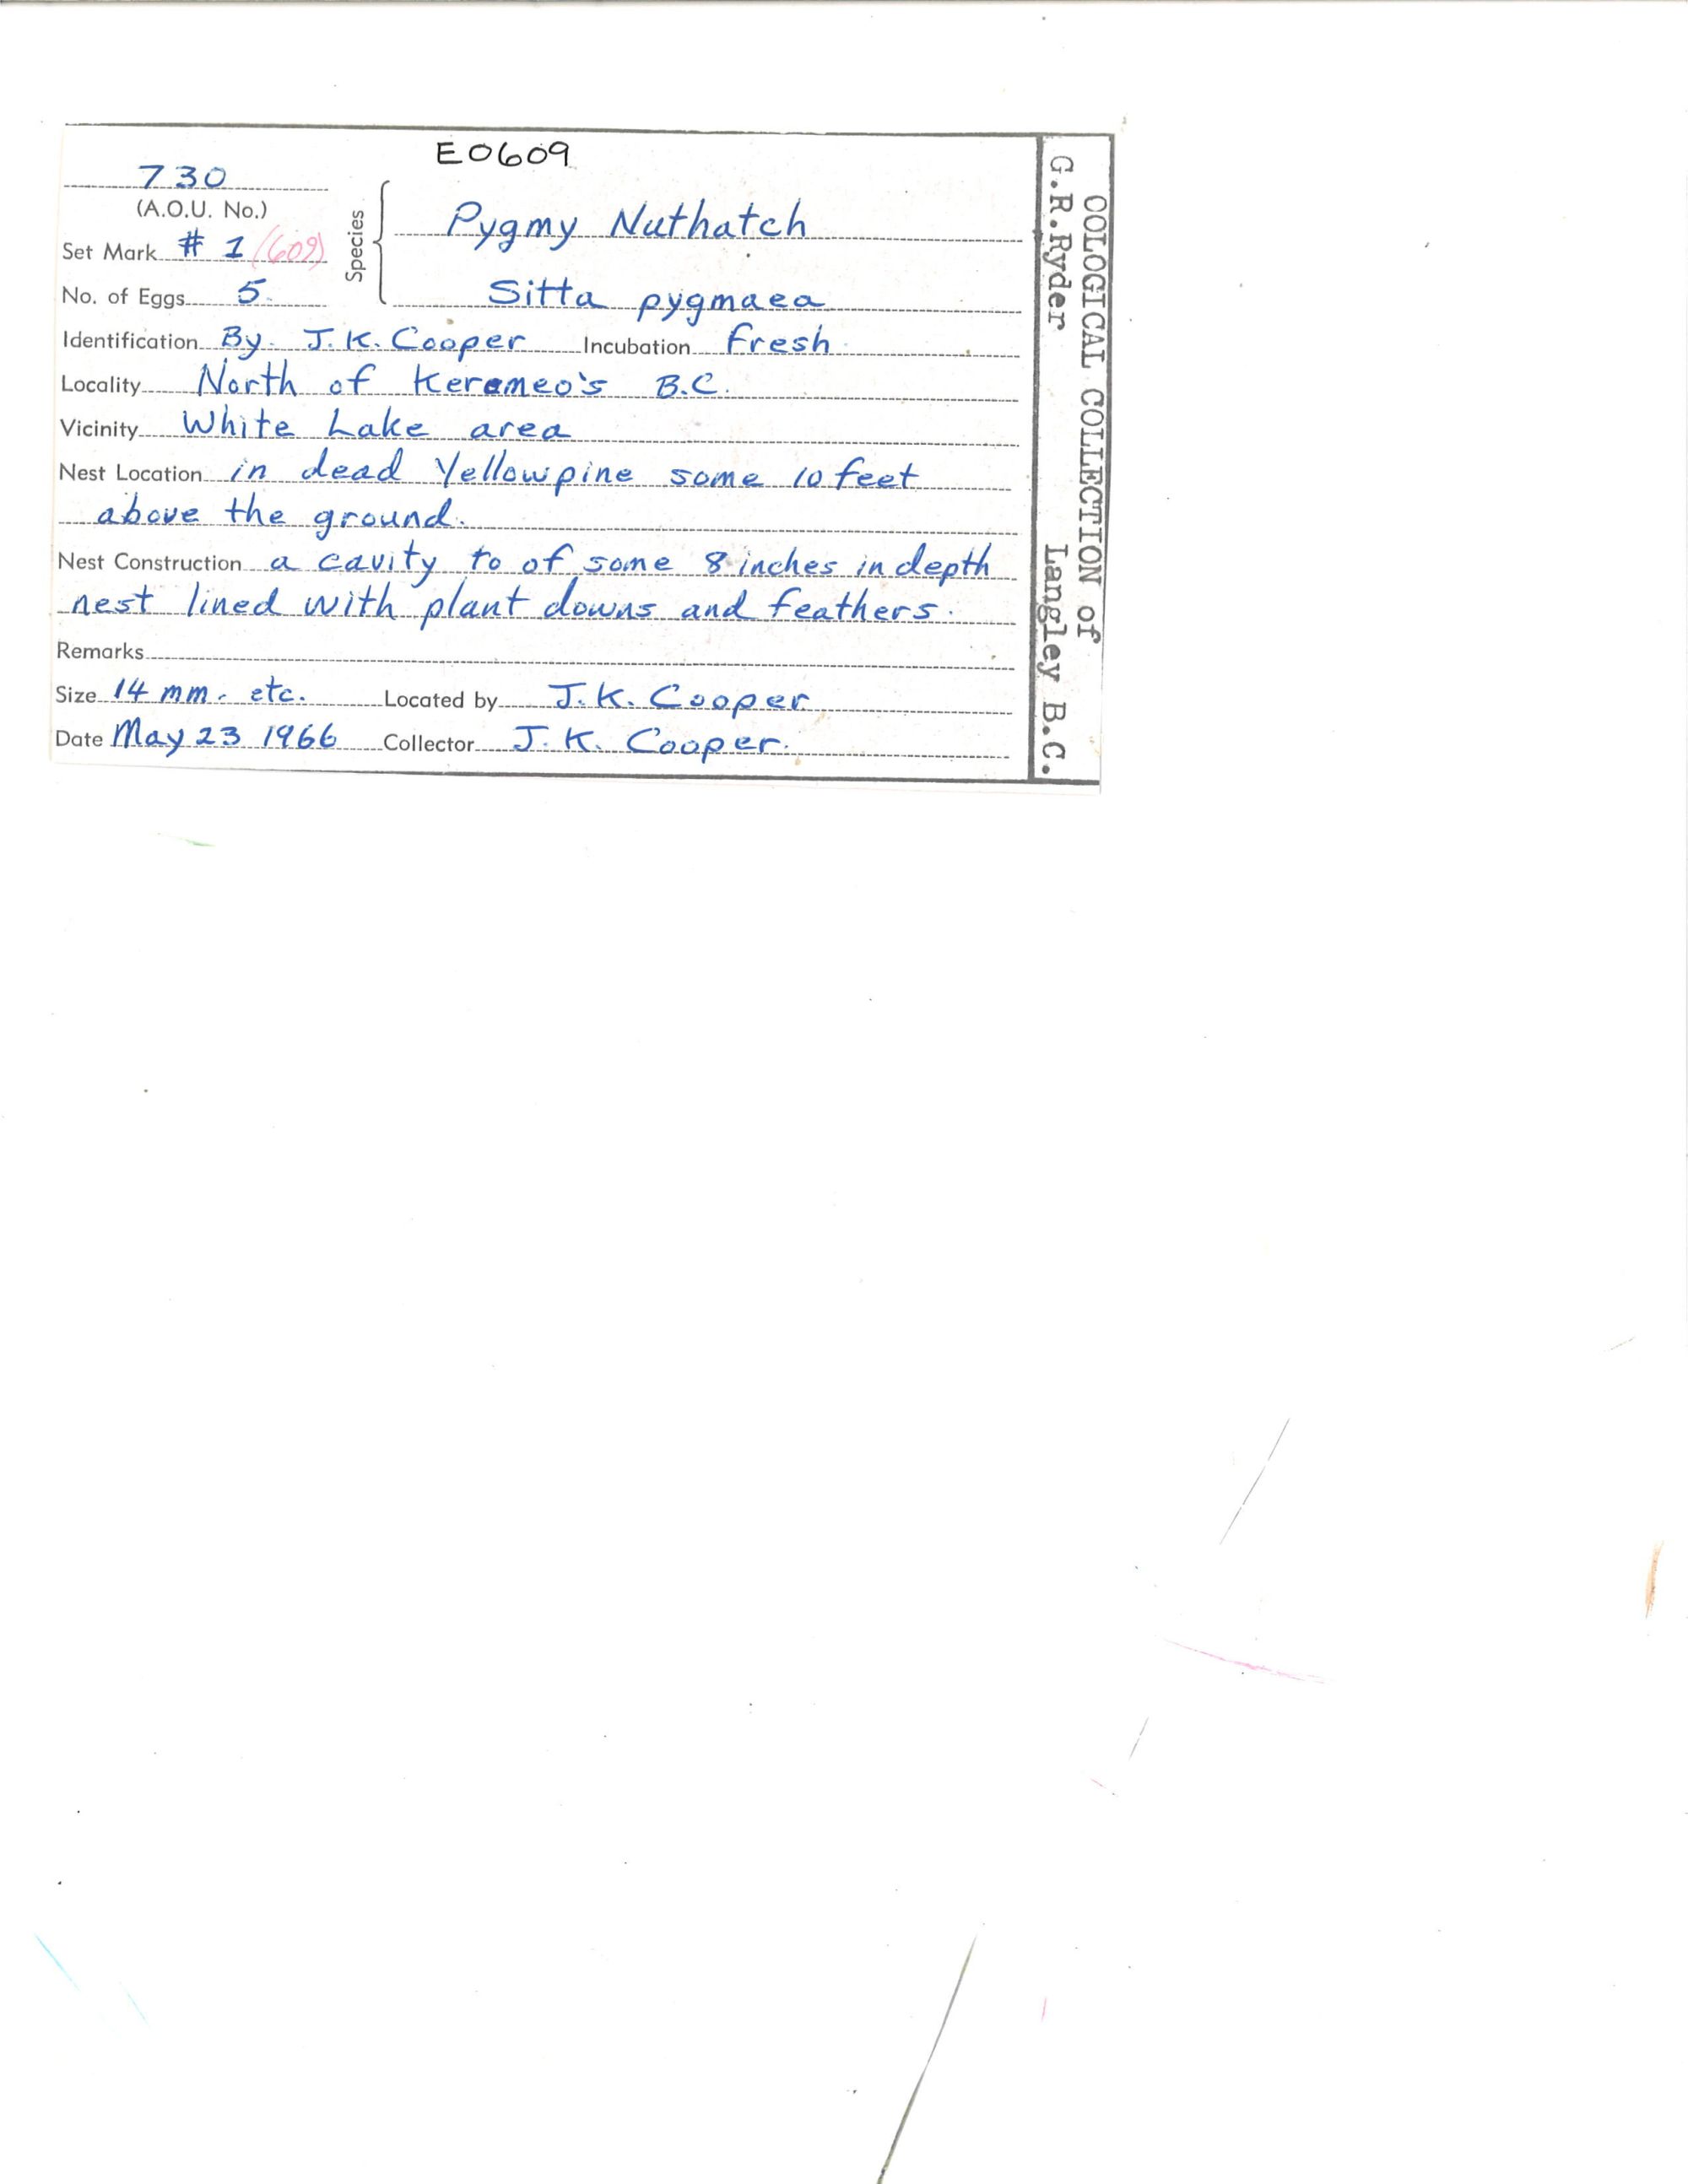 E0609
730
(A.O.U. No.)
Set Mark # 1 (609)
No. of Eggs 5
Species
Pygmy Nuthatch
Sitta pygmaea
Identification By J.K. Cooper Incubation Fresh
Locality North of Keremeo's B.C.
Vicinity White Lake area
Nest Location in dead Yellowpine some 10 feet
above the ground.
Nest Construction a cavity to of some 8 inches in depth
nest lined with plant downs and feathers.
Remarks
Size 14 mm. etc. Located by J.K. Cooper
Date May 23 1966 Collector J.K. Cooper.
OOLOGICAL COLLECTION of
G.R.Ryder Langley B.C.